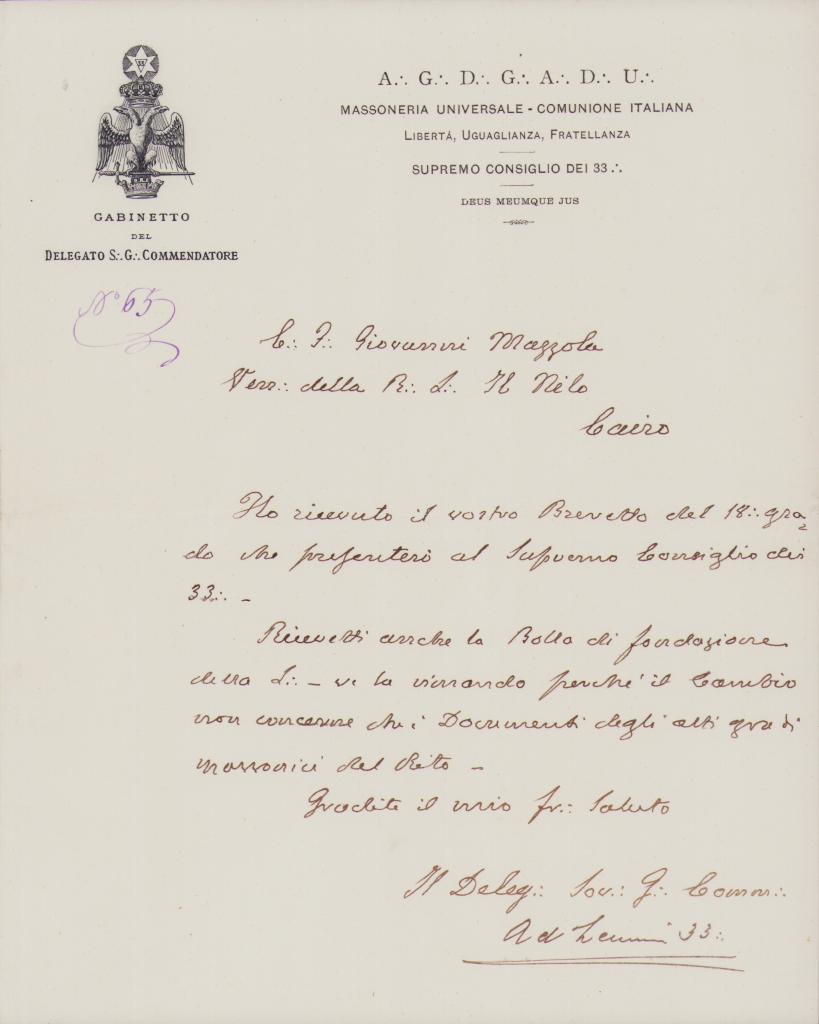 33
A∴ G∴ D∴ G∴ A∴ D∴ U∴
MASSONERIA UNIVERSALE - COMUNIONE ITALIANA
LIBERTÁ, UGUAGLIANZA, FRATELLANZA
SUPREMO CONSIGLIO DEI 33∴
DEUS MEUMQUE JUS
GABINETTO
DEL
DELEGATO S∴ G∴ COMMENDATORE
N° 65
C∴ F∴ Giovanni Mazzola
Ven∴ della R∴ L∴ Il Nilo
Cairo
Ho ricevuto il vostro Brevetto del 18∴ gra=
do che presenterò al Supremo Consiglio dei
33∴ –
Ricevetti anche la Bolla di fondazione
della L∴ – ve la rimando perché il Cambio
non concerne che i Documenti degli alti gradi
massonici del Rito –
Gradite il mio fr∴ Saluto
Il Deleg∴ Sov∴ G∴ Comm∴
Ad Lemmi 33∴